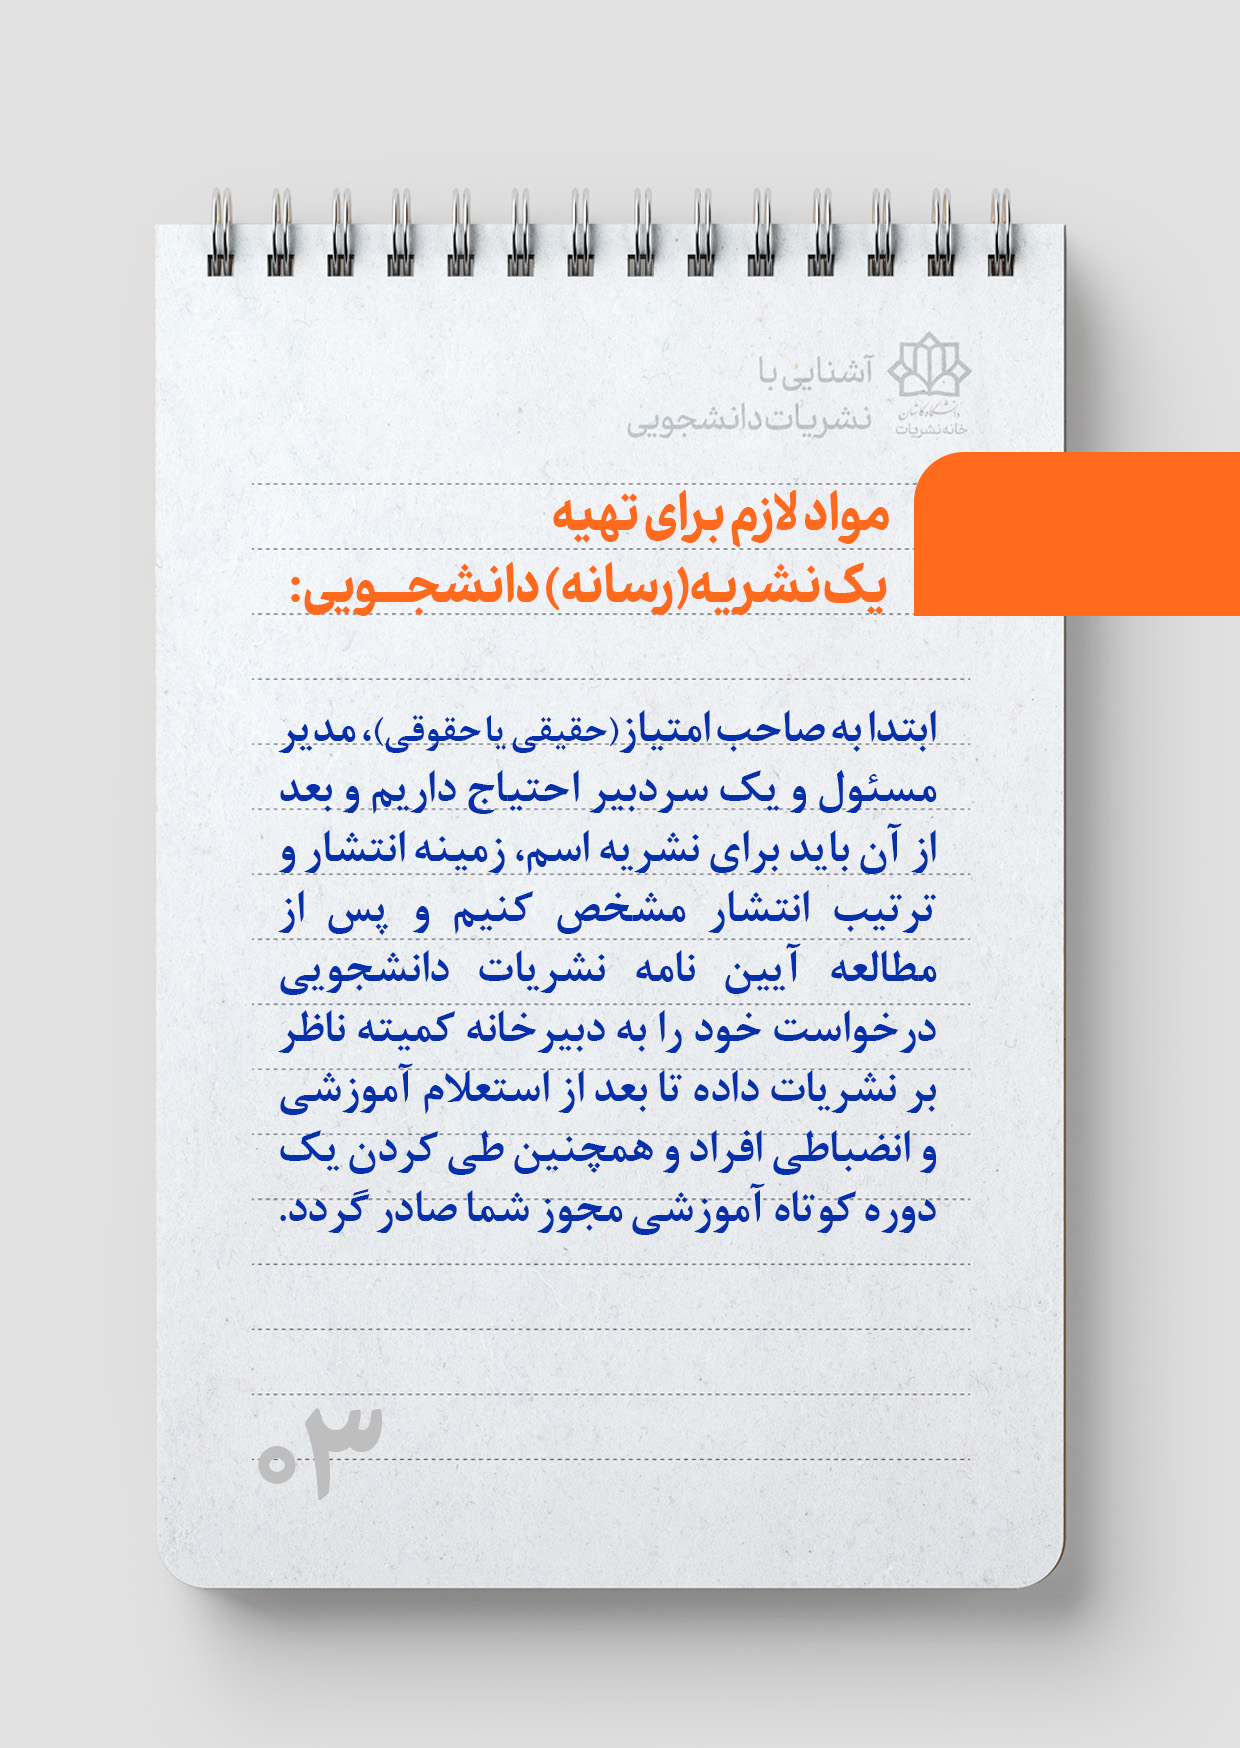 آشنایی با
نشریات دانشجویی
دانشگاه کاشان
خانه نشریات
مواد لازم برای تهیه
یک نشریه(رسانه) دانشجـــویی:
ابتدا به صاحب امتیاز(حقیقی یا حقوقی)، مدیر
مسئول و یک سردبیر احتیاج داریم و بعد
از آن باید برای نشریه اسم، زمینه انتشار و
ترتیب انتشار مشخص کنیم و پس از
مطالعه آیین نامه نشریات دانشجویی
درخواست خود را به دبیرخانه کمیته ناظر
بر نشریات داده تا بعد از استعلام آموزشی
و انضباطی افراد و همچنین طی کردن یک
دوره کوتاه آموزشی مجوز شما صادر گردد.
۰۳